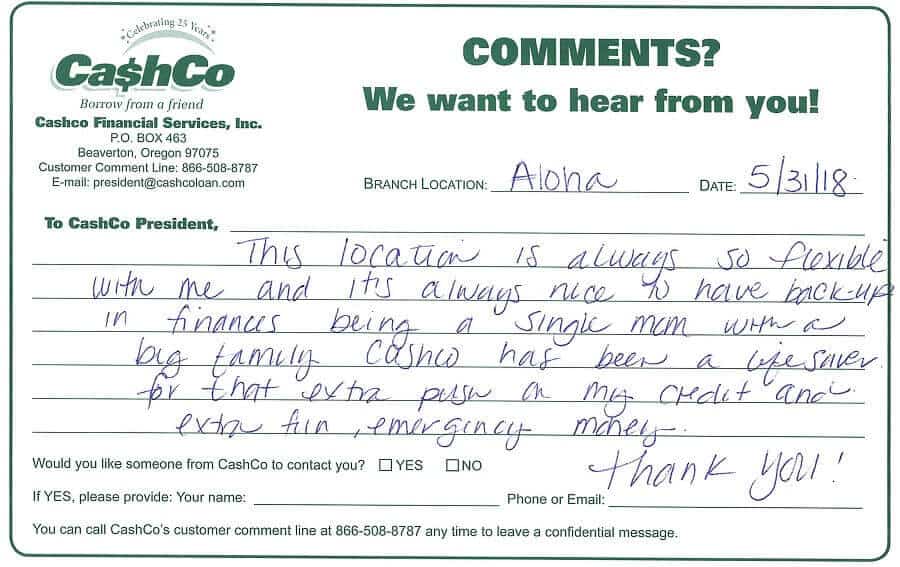 Celebrating 25 Years
Ca$hCo
Borrow from a friend
Cashco Financial Services, Inc.
P.O. BOX 463
Beaverton, Oregon 97075
Customer Comment Line: 866-508-8787
E-mail: president@cashcoloan.com
COMMENTS?
We want to hear from you!
BRANCH LOCATION: Aloha DATE: 5/31/18
To CashCo President,
This location is always so flexible
with me and it's always nice to have back-up
in finances being a single mom with a
big family Cashco has been a life saver
for that extra push on my credit and
extra fun, emergency money.
Thank you!
Would you like someone from CashCo to contact you? YES NO
If YES, please provide: Your name: Phone or Email:
You can call CashCo's customer comment line at 866-508-8787 any time to leave a confidential message.